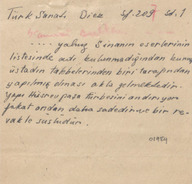 Türk Sanatı Diez Sf. 209 Sd. 1
.... yalnız Sinanın eserlerinin
listesinde adı bulunmadığından bunu
üstadın talebelerinden biri tarafından
yapılmış olması akla gelmektedir.
Yapı Hüsrev paşa türbesini andırıyor
fakat ondan daha sadedir ve bir re-
vakla süslüdür.
01954